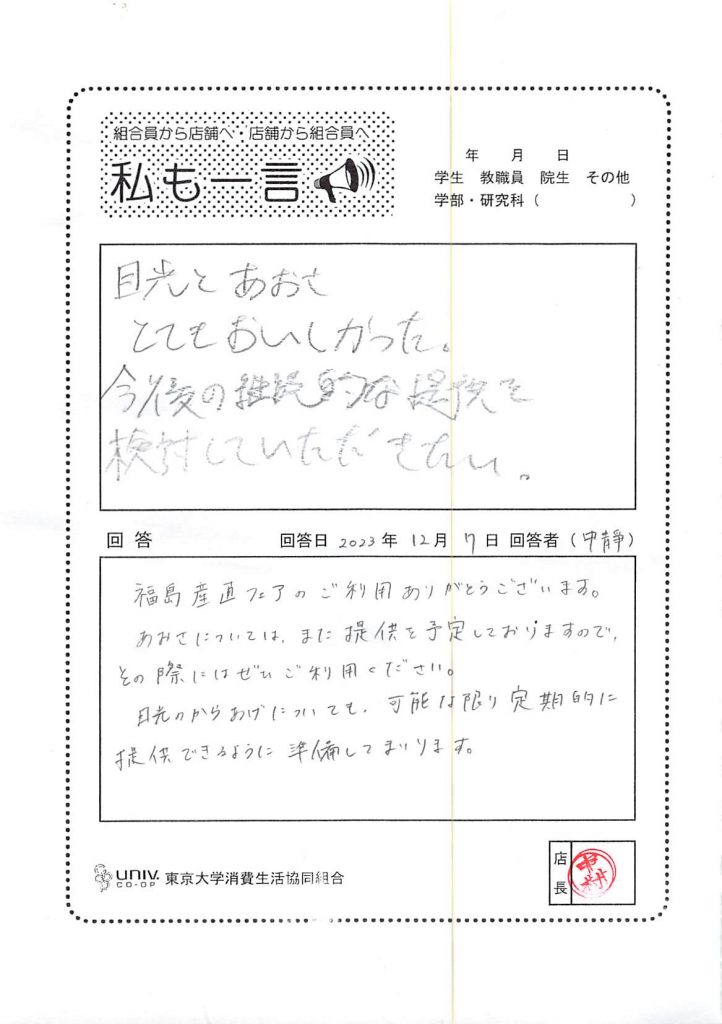 組合員から店舗へ・店舗から組合員へ
私も一言
年 月 日
学生 教職員 院生 その他
学部・研究科（ ）
目光とあおさ
とてもおいしかった。
今後の継続的な提供を
検討していただきたい。
回答 回答日 2023年 12月 7日 回答者（中靜）
福島産直フェアのご利用ありがとうございます。
あおさについては、また提供を予定しておりますので、
その際にはぜひご利用ください。
目光のからあげについても、可能な限り定期的に
提供できるように準備してまいります。
UNIV.
CO-OP
東京大学消費生活協同組合
店長
中村